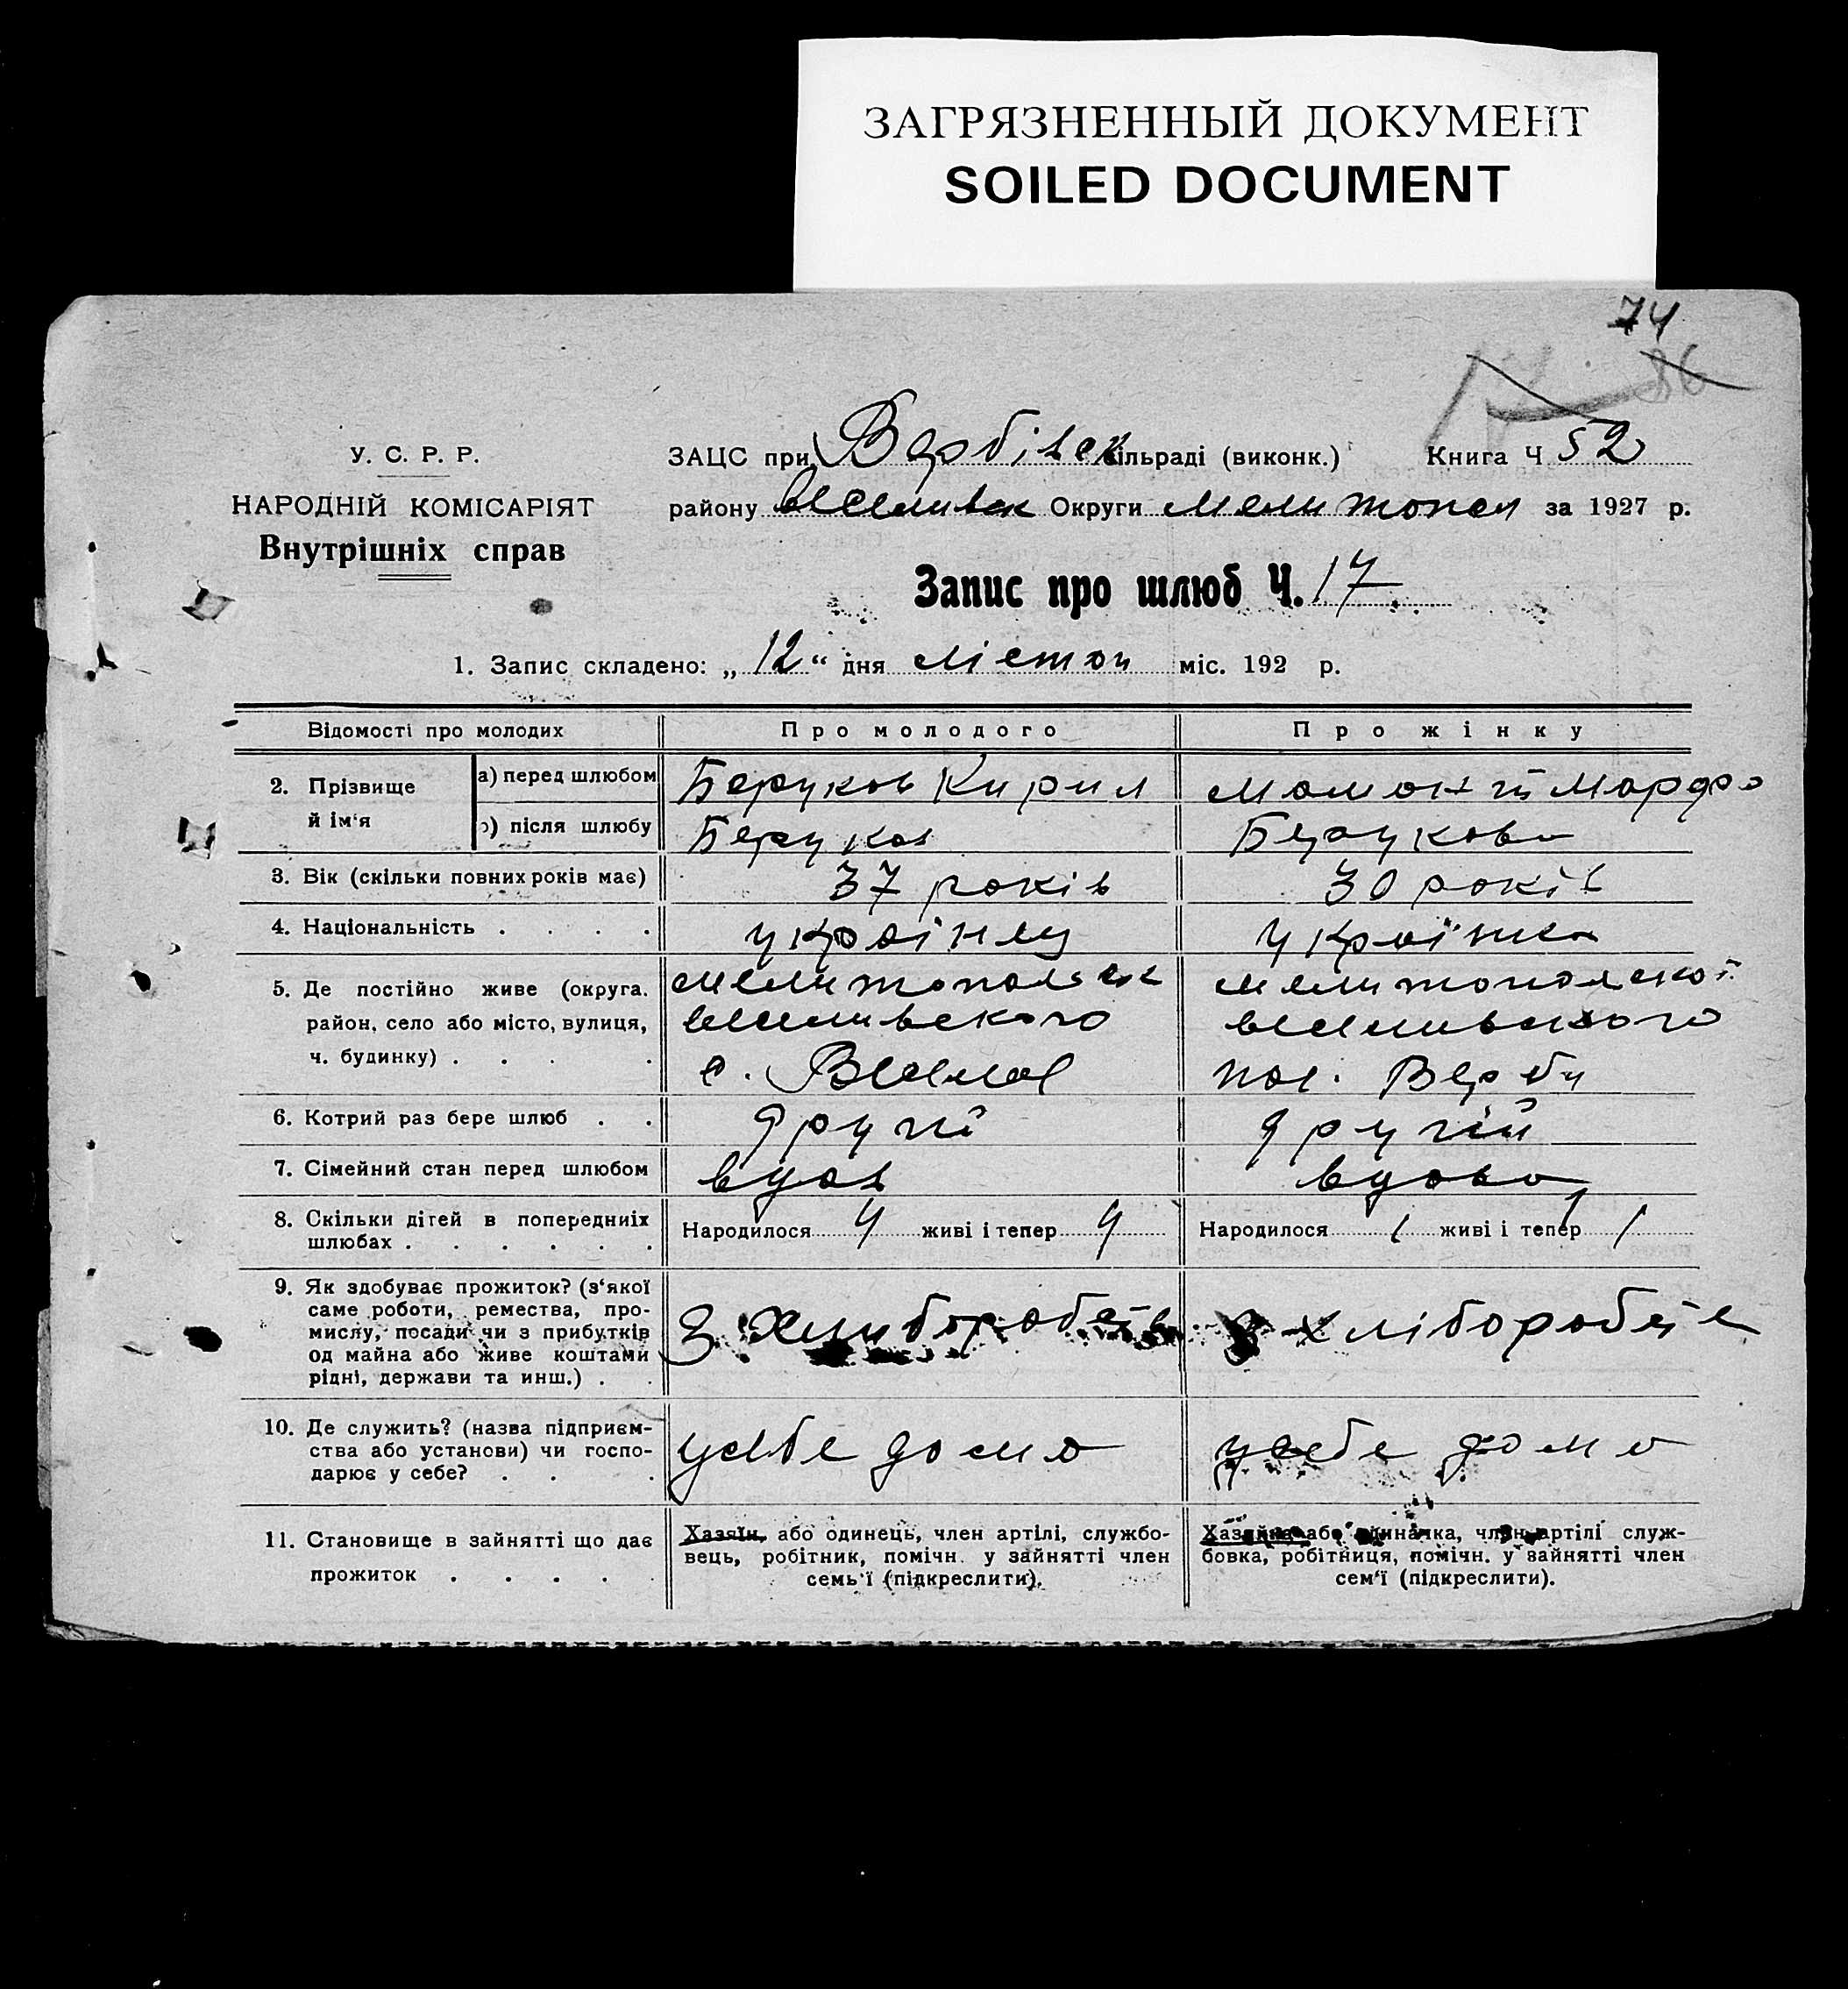 ЗАГРЯЗНЕННЫЙ ДОКУМЕНТ
SOILED DOCUMENT
74
86
У. С. Р. Р.
НАРОДНІЙ КОМІСАРІЯТ
Внутрішніх справ
ЗАЦС при Вербівск сільраді (виконк.) Книга Ч 52
району Веселивск Округи Мелитопол за 1927 р.
Запис про шлюб Ч. 17
1. Запис складено: „12“ дня лістоп міс. 192 р.
Відомості про молодих
Про молодого
Про жінку
2. Прізвище й ім‘я
а) перед шлюбом
Беруков Кирил
Марфа
б) після шлюбу
Беруков
Берукова
3. Вік (скільки повних років має)
37 років
30 років
4. Національність . . . .
україн
українка
5. Де постійно живе (округа,
район, село або місто, вулиця,
ч. будинку) . . . .
Мелитопольск
Веселивского
с. Весел
Мелитополскої
Веселивского
пос. Верби
6. Котрий раз бере шлюб . .
другий
другий
7. Сімейний стан перед шлюбом
вдов
вдова
8. Скільки дітей в попередниіх
шлюбах . . . . . .
Народилося 4 живі і тепер 4
Народилося 1 живі і тепер 1
9. Як здобуває прожиток? (з‘якої
саме роботи, ремества, про-
мислу, посади чи з прибутків
од майна або живе коштами
рідні, держави та инш.) . .
З
З хлібороб
10. Де служить? (назва підприєм-
ства або установи) чи госпо-
дарює у себе? . . .
усебе дома
усебе дома
11. Становище в зайнятті що дає
прожиток . . . . .
Хазяїн, або одинець, член артілі, службо-
вець, робітник, помічн. у зайнятті член
семь‘ї (підкреслити).
Хазяйка або одиначка, член артілі служ-
бовка, робітниця, помічн. у зайнятті член
сем‘ї (підкреслити).